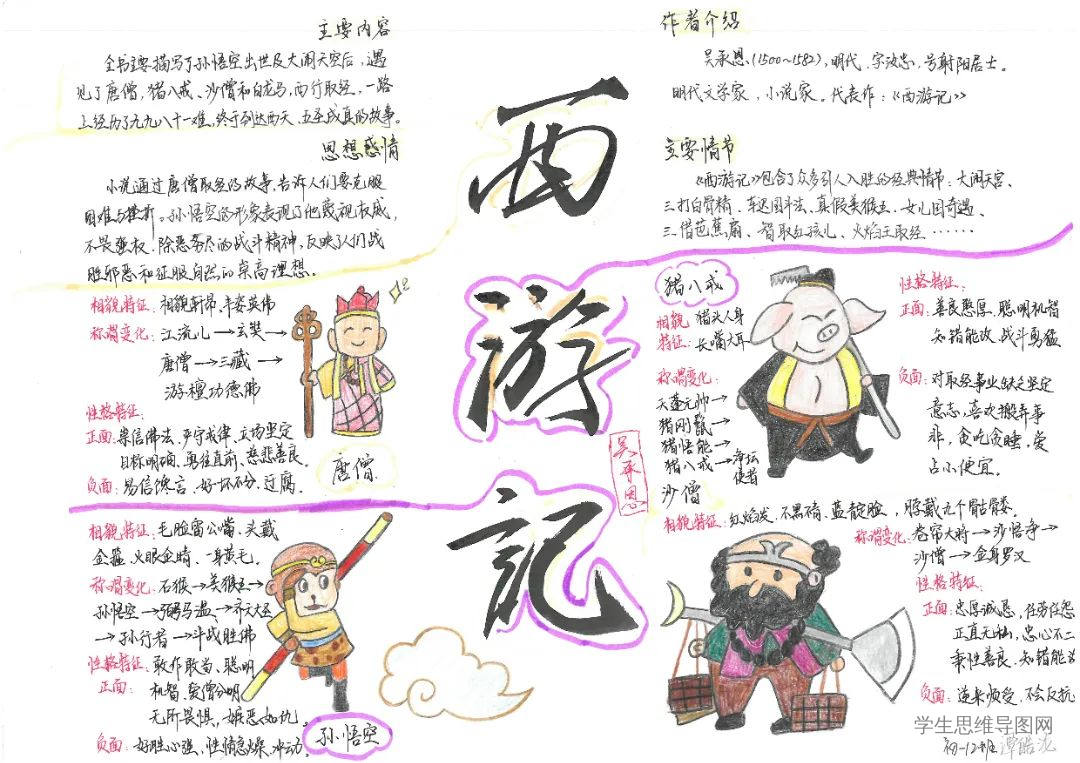 主要内容
全书主要描写了孙悟空出世及大闹天空后，遇
见了唐僧，猪八戒、沙僧和白龙马，西行取经，一路
上经历了九九八十一难，终于到达西天、五圣成真的故事。
思想感情
小说通过唐僧取经的故事，告诉人们要克服
困难与挫折。孙悟空的形象表现了他蔑视权威，
不畏强权、除恶务尽的战斗精神，反映了人们战
胜邪恶和征服自然的崇高理想。
相貌特征：相貌轩昂、丰姿英伟
称谓变化：江流儿→玄奘→
唐僧→三藏→
游檀功德佛
性格特征：
正面：崇信佛法、严守戒律、立场坚定
目标明确、勇往直前、慈悲善良。
负面：易信馋言、好坏不分、迂腐。
唐僧
相貌特征：毛脸雷公嘴，头戴
金箍，火眼金睛、一身黄毛。
称谓变化：石猴→美猴王→
孙悟空→弼马温→齐天大圣
→孙行者→斗战胜佛
性格特征：敢作敢当、聪明
正面：机智、爱憎分明
无所畏惧，嫉恶如仇。
负面：好胜心强，性情急燥、冲动。
孙悟空
西
游
記
吴承恩
作者介绍
吴承恩(1500~1582)，明代，字汝忠，号射阳居士。
明代文学家，小说家。代表作：《西游记》
主要情节
《西游记》包含了众多引人入胜的经典情节：大闹天宫、
三打白骨精、车迟国斗法、真假美猴王、女儿国奇遇、
三借芭蕉扇、智取红孩儿、火焰王取经……
猪八戒
相貌特征：猪头人身
长嘴大耳
称谓变化：
天蓬元帅→
猪刚鬣→
猪悟能→
猪八戒→净坛使者
性格特征：
正面：善良憨厚、聪明机智
知错能改、战斗勇猛
负面：对取经事业缺乏坚定
意志，喜欢搬弄事
非，贪吃贪睡，爱
占小便宜。
沙僧
相貌特征：红焰发，不黑不青，蓝靛脸，脖戴九个骷髅。
称谓变化：卷帘大将→沙悟净→
沙僧→金身罗汉
性格特征：
正面：忠厚诚恳，任劳任怨
正直无私，忠心不二
秉性善良、知错能改
负面：逆来顺受，不会反抗
学生思维导图网
初一12班